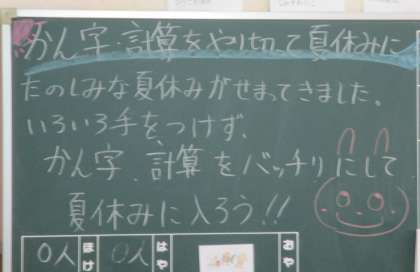 かん字・計算をやり切って夏休みに
たのしみな夏休みがせまってきました。
いろいろ手をつけず、
かん字、計算をバッチリにして
夏休みに入ろう!!
0人
まけ
0人
はや
おや